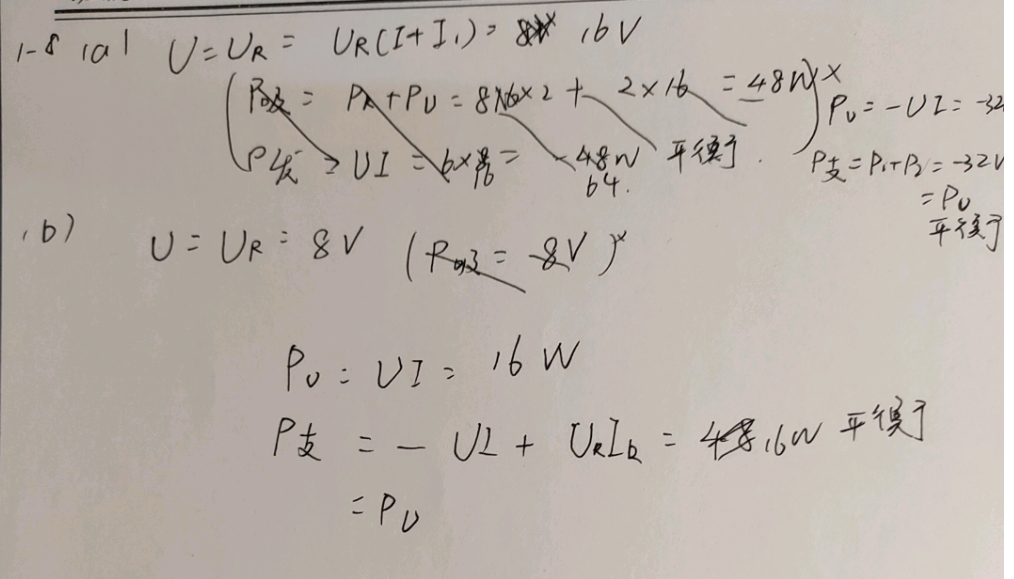 1-8 (a) U=U_R= U_R(I+I₁)= 16V
P支 = P_R+P_U = 8×2 + 2×16 = 48W ×
P_U=-UI=-32
P发 = UI = 6×8 = -48W 平衡了.
64.
P支=P₁+P₂=-32W
=P_U
平衡了
(b) U = U_R = 8V ( = -8V )×
P_U = UI = 16W
P支 = - UI + U_R I_R = 16W 平衡了
= P_U